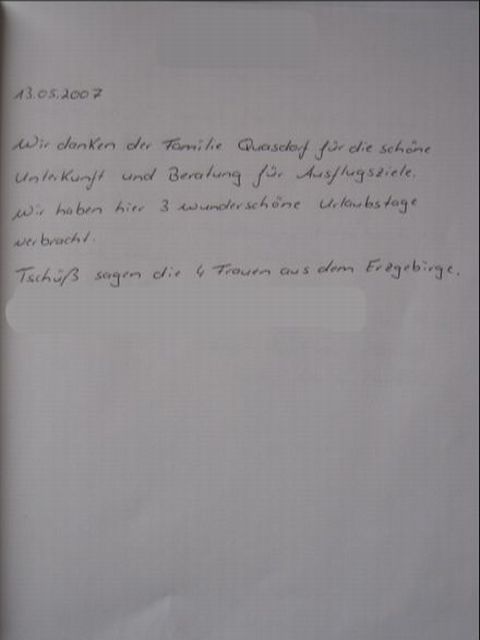 13.05.2007
Wir danken der Familie Quasdorf für die schöne
Unterkunft und Beratung für Ausflugsziele.
Wir haben hier 3 wunderschöne Urlaubstage
verbracht.
Tschüß sagen die 4 Frauen aus dem Erzgebirge.